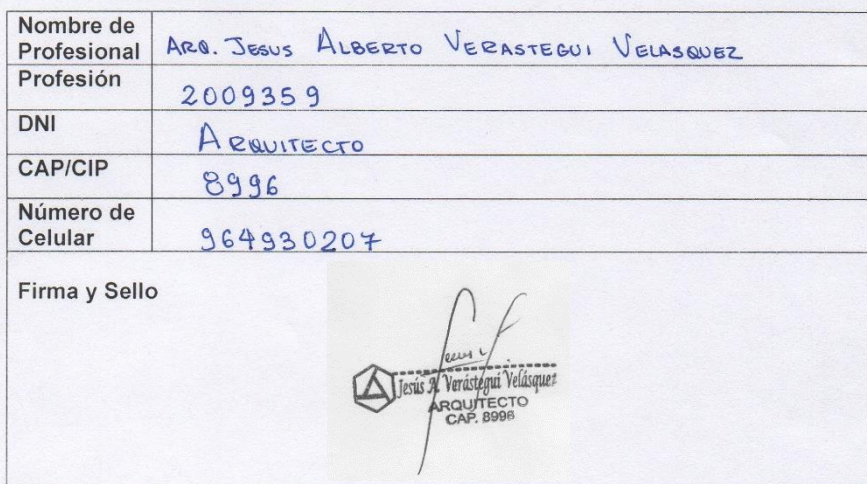 Nombre de
Profesional ARQ. JESUS ALBERTO VERASTEGUI VELASQUEZ
Profesión
2009359
DNI
ARQUITECTO
CAP/CIP
8996
Número de
Celular 964930207
Firma y Sello
Jesús A. Verástegui Velásquez
ARQUITECTO
CAP. 8996